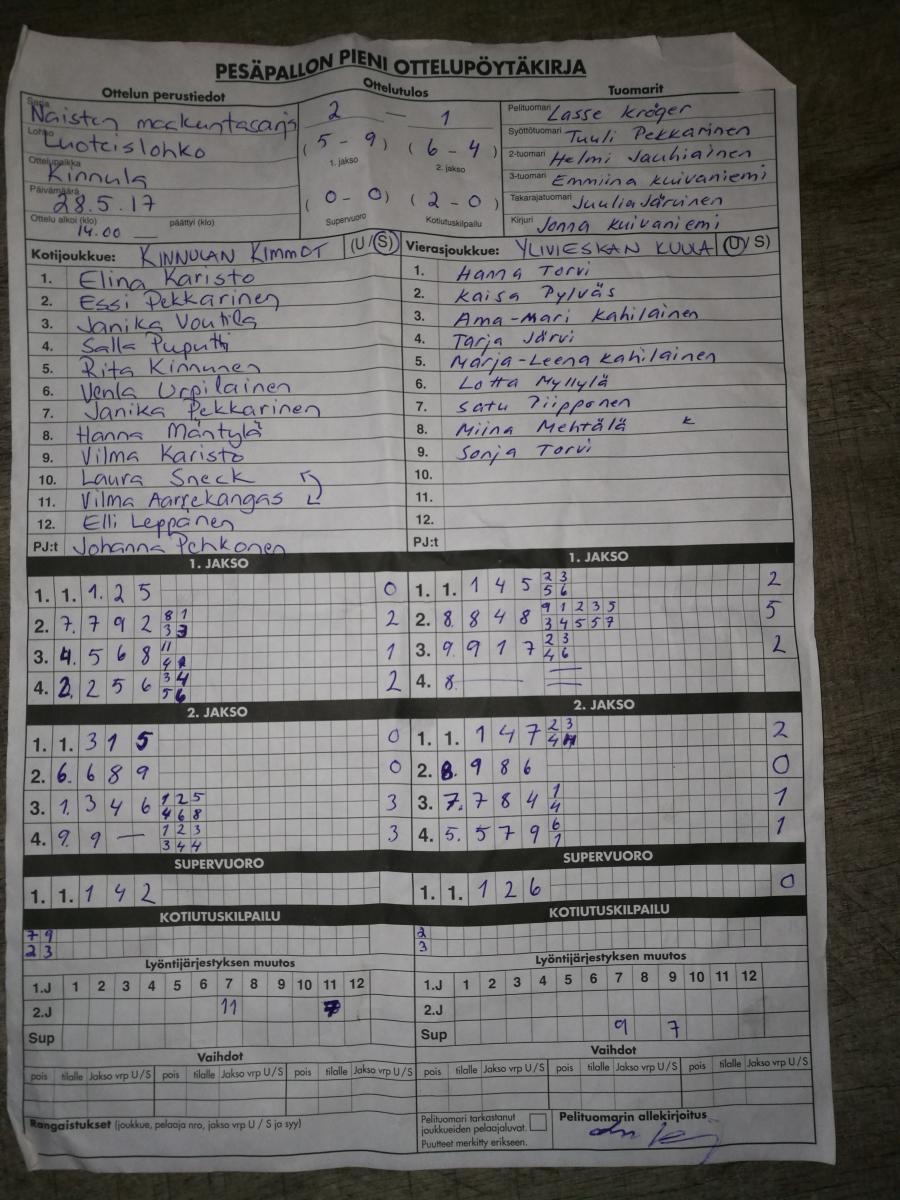 PESÄPALLON PIENI OTTELUPÖYTÄKIRJA
Ottelun perustiedot Ottelutulos Tuomarit
Sarja Naisten maakuntasarja 2 — 1 Pelituomari Lasse Kröger
Lohko Luoteislohko (5 - 9) (6 - 4) Syöttötuomari Tuuli Pekkarinen
1. jakso 2. jakso 2-tuomari Helmi Jauhiainen
Ottelupaikka Kinnula 3-tuomari Emmiina Kuivaniemi
Päivämäärä 28.5.17 (0 - 0) (2 - 0) Takarajatuomari Juulia Järvinen
Ottelu alkoi (klo) 14.00 päättyi (klo) — Supervuoro Kotiutuskilpailu Kirjuri Jonna Kuivaniemi
Kotijoukkue: KINNULAN KIMMOT (U/S) Vierasjoukkue: YLIVIESKAN KUULA (U/S)
1. Elina Karisto 1. Hanna Torvi
2. Essi Pekkarinen 2. Kaisa Pylväs
3. Janika Voutila 3. Ama-Mari Kahilainen
4. Salla Puputti 4. Tarja Järvi
5. Rita Kinnunen 5. Marja-Leena Kahilainen
6. Venla Urpilainen 6. Lotta Myllylä
7. Janika Pekkarinen 7. Satu Piipponen
8. Hanna Mäntylä 8. Miina Mehtälä K
9. Vilma Karisto 9. Sonja Torvi
10. Laura Sneck 10.
11. Vilma Aarrekangas 11.
12. Elli Leppänen 12.
PJ:t Johanna Pehkonen PJ:t
1. JAKSO 1. JAKSO
1. 1. 1. 2 5 0 1. 1. 1 4 5 2 3 5 6 2
2. 7. 7 9 2 8 1 3 3 2 2. 8. 8 4 8 9 1 2 3 5 3 4 5 5 7 5
3. 4. 5 6 8 11 4 1 3. 9. 9 1 7 2 3 4 6 2
4. 2. 2 5 6 3 4 5 6 2 4. 8. —
2. JAKSO 2. JAKSO
1. 1. 3 1 5 0 1. 1. 1 4 7 2 3 4 2
2. 6. 6 8 9 0 2. 8. 9 8 6 0
3. 1. 3 4 6 1 2 5 4 6 8 3 3. 7. 7 8 4 1 4 1
4. 9. 9 — 1 2 3 3 4 4 3 4. 5. 5 7 9 6 1 1
SUPERVUORO SUPERVUORO
1. 1. 1 4 2 1. 1. 1 2 6 0
KOTIUTUSKILPAILU KOTIUTUSKILPAILU
7 9 2
2 3 3
Lyöntijärjestyksen muutos Lyöntijärjestyksen muutos
1.J 1 2 3 4 5 6 7 8 9 10 11 12 1.J 1 2 3 4 5 6 7 8 9 10 11 12
2.J 11 7 2.J
Sup Sup 9 7
Vaihdot Vaihdot
pois tilalle Jakso vrp U/S pois tilalle Jakso vrp U/S pois tilalle Jakso vrp U/S pois tilalle Jakso vrp U/S pois tilalle Jakso vrp U/S pois tilalle Jakso vrp U/S
Rangaistukset (joukkue, pelaaja nro, jakso vrp U / S ja syy) Pelituomari tarkastanut Pelituomarin allekirjoitus
joukkueiden pelaajaluvat.
Puutteet merkitty erikseen.